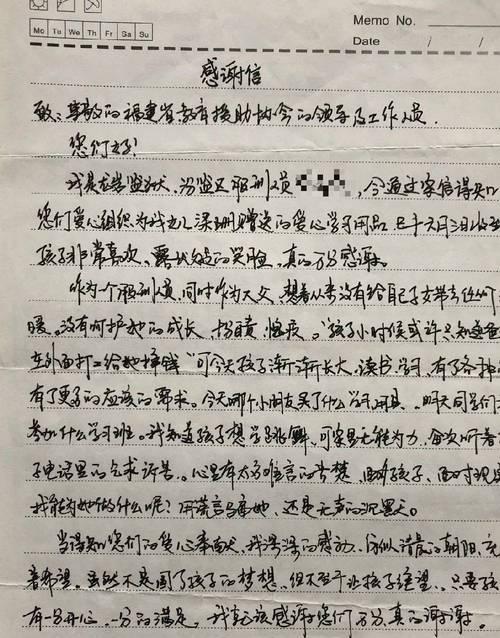 Memo No.
Mo Tu We Th Fr Sa Su
Date / /
感谢信
致：尊敬的福建省教育援助协会的领导及工作人员．
您们好！
我是龙岩监狱，分监区服刑人员，今通过家信得知
您们爱心组织为我女儿赠送的爱心学习用品已于六月三日收
孩子非常喜欢、露出的笑脸，真的万分感谢。
作为一个服刑人员，同时作为人父，想着从来没有给自己子女带去任何
暖。没有呵护她的成长，"孩子小时候或许只知道爸
在外面打工给她挣钱"可今天孩子渐渐长大、读书学习，有了各种
有了更多的应该的要求。今天哪个小朋友买了什么学习用具．明天同学们
参加什么学习班。我知道孩子想学跳舞、可家里无能为力，每次听着
子电话里的乞求诉告。心里有太多难言的苦楚，面对孩子、面对现
我能为她做的什么呢？用谎言她，还是无声的沉默。
当得知您们的爱心奉献，我深深的感动、仿似清晨的朝阳、充
着希望。虽然不是圆了孩子的梦想，但不至于让孩子绝望．只要孩
有一分开心，一分的满足，我就该感谢您们万分，真的谢谢。